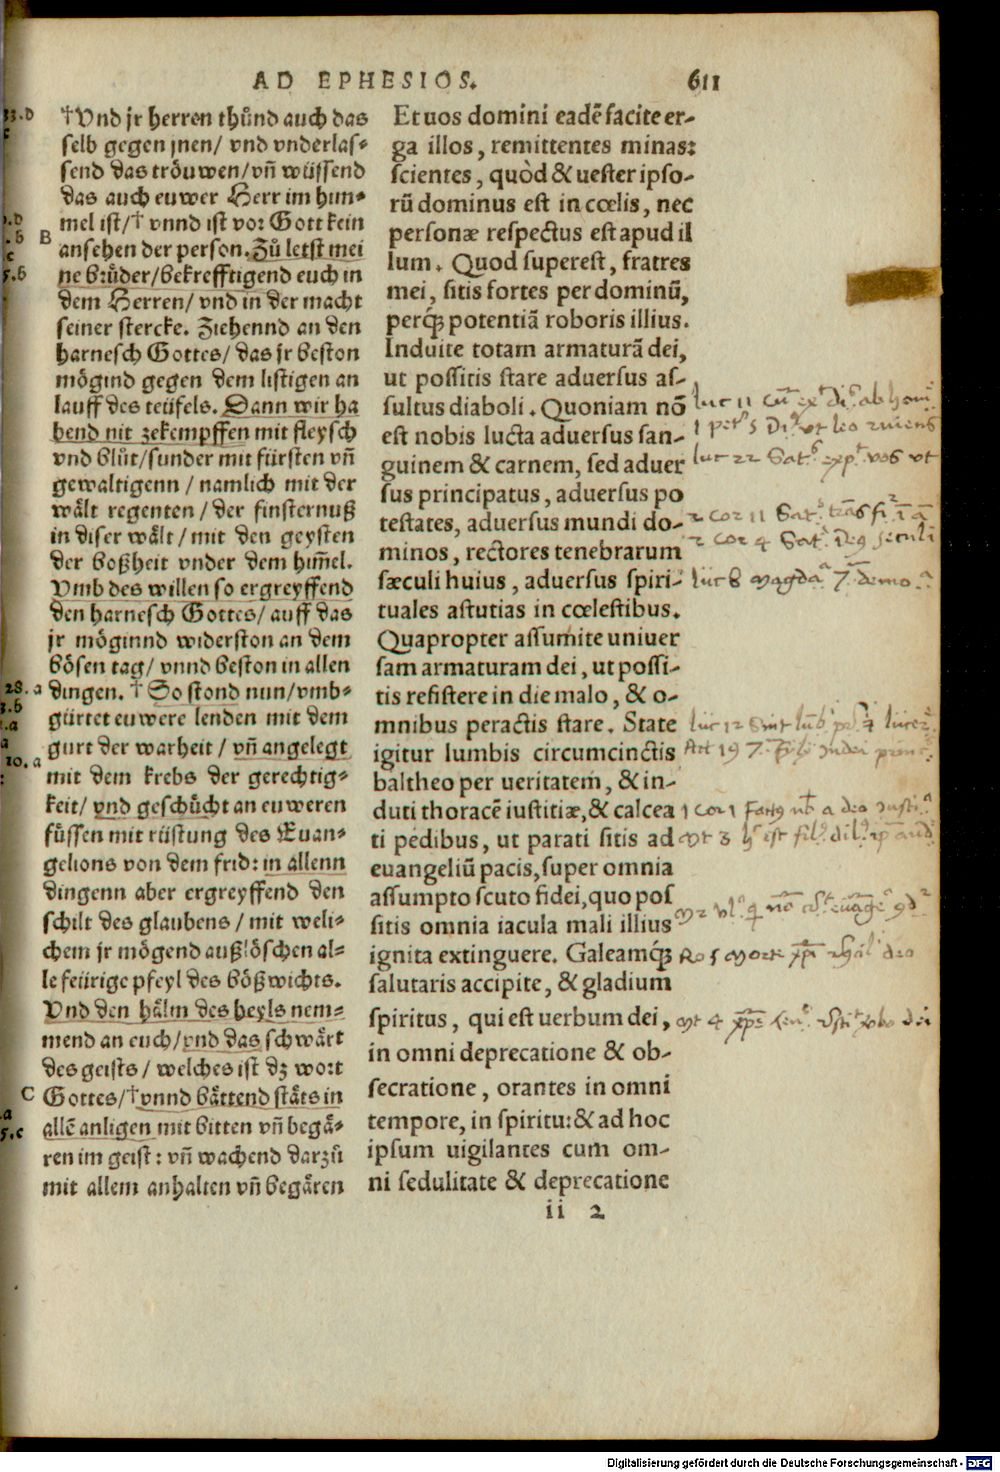 AD EPHESIOS. 611
†Vnd jr herren thůnd auch das
selb gegen jnen/ vnd vnderlas⸗
send das tröuwen/vñ wüssend
das auch euwer Herr im him⸗
mel ist/† vnnd ist vor Gott kein
B
ansehen der person. Zů letst mei
ne brůder/bekrefftigend euch in
dem Herren/ vnd in der macht
seiner stercke. Ziehennd an den
harnesch Gottes/ das jr beston
mögind gegen dem listigen an
lauff des teüfels. Dann wir ha
bend nit zekempffen mit fleysch
vnd blůt/sunder mit fürsten vñ
gewaltigenn / namlich mit der
wält regenten / der finsternuß
in diser wält / mit den geysten
der boßheit vnder dem him̃el.
Vmb des willen so ergreyffend
den harnesch Gottes/ auff das
jr möginnd widerston an dem
bösen tag/ vnnd beston in allen
dingen. † So stond nun/vmb⸗
gürtet euwere lenden mit dem
gurt der warheit / vñ angelegt
mit dem krebs der gerechtig⸗
keit/ vnd geschůcht an euweren
füssen mit rüstung des Euan⸗
gelions von dem frid: in allenn
dingenn aber ergreyffend den
schilt des glaubens / mit weli⸗
chem jr mögend außlöschen al⸗
le feürige pfeyl des bößwichts.
Vnd den hälm des heyls nem⸗
mend an euch/vnd das schwärt
des geists / welches ist dz wort
C
Gottes/†vnnd bättend stäts in
allẽ anligen mit bitten vñ begä⸗
ren im geist: vñ wachend darzů
mit allem anhalten vñ begären
Et uos domini eadẽ facite er-
ga illos, remittentes minas:
scientes, quòd & uester ipso-
rũ dominus est in cœlis, nec
personæ respectus est apud il
lum. Quod superest, fratres
mei, sitis fortes per dominũ,
perq́; potentiã roboris illius.
Induite totam armaturã dei,
ut possitis stare aduersus as-
sultus diaboli. Quoniam nõ
est nobis lucta aduersus san-
guinem & carnem, sed aduer
sus principatus, aduersus po
testates, aduersus mundi do-
minos, rectores tenebrarum
sæculi huius, aduersus spiri-
tuales astutias in cœlestibus.
Quapropter assumite uniuer
sam armaturam dei, ut possi-
tis resistere in die malo, & o-
mnibus peractis stare. State
igitur lumbis circumcinctis
baltheo per ueritatem, & in-
duti thoracẽ iustitiæ, & calcea
ti pedibus, ut parati sitis ad
euangeliũ pacis, super omnia
assumpto scuto fidei, quo pos
sitis omnia iacula mali illius
ignita extinguere. Galeamq́;
salutaris accipite, & gladium
spiritus, qui est uerbum dei,
in omni deprecatione & ob-
secratione, orantes in omni
tempore, in spiritu: & ad hoc
ipsum uigilantes cum om-
ni sedulitate & deprecatione
ii 2
Digitalisierung gefördert durch die Deutsche Forschungsgemeinschaft - DFG